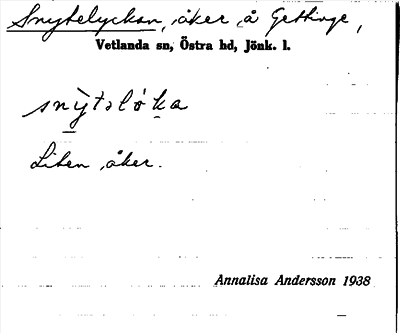 Snytelyckan, åker å Gettinge,
Vetlanda sn, Östra hd, Jönk. l.
snỳtəlo̒ka
Liten åker.
Annalisa Andersson 1938